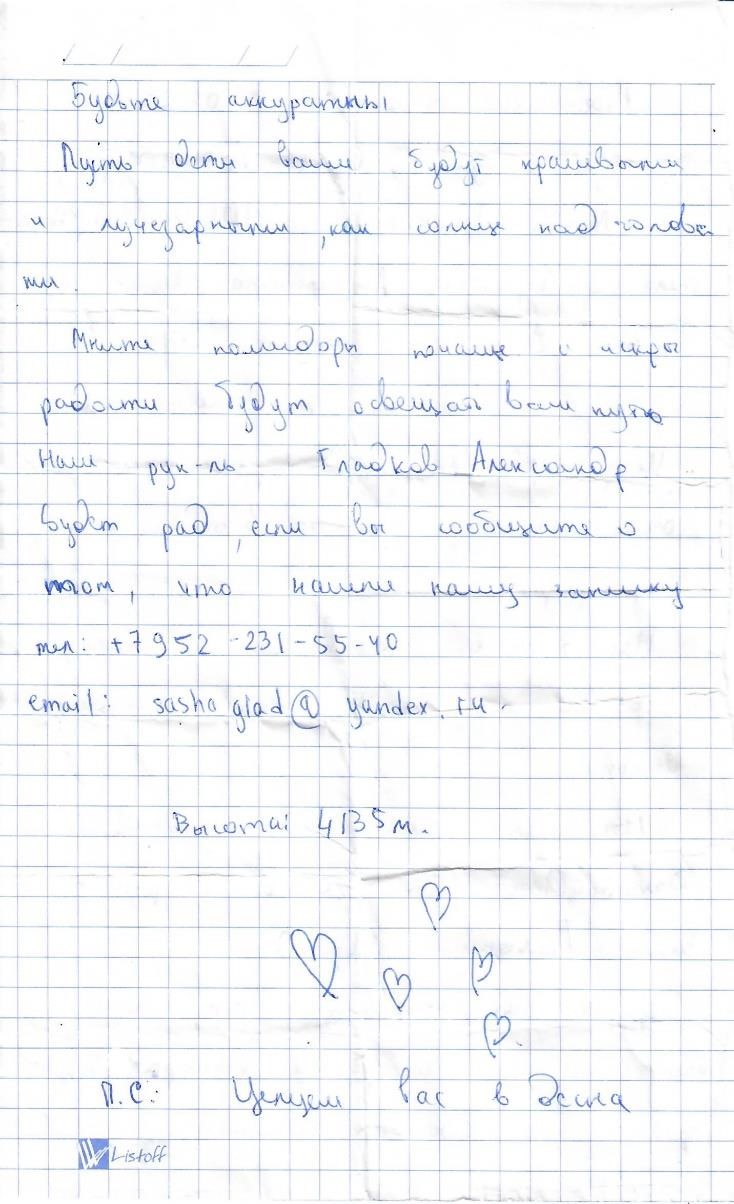 Будьте аккуратны
Пусть дети ваши будут красивыми
и лучезарными, как солнце над голова
ми.
Мните помидоры почаще и искры
радости будут освещать ваш путь
Наш рук-ль Гладков Александр
Будет рад, если вы сообщите о
том, что нашли нашу записку
тел: +7952-231-55-40
email: sashaglad@yandex.ru.
Высота: 4135м.
П.С: Целуем вас в десна
Listoff